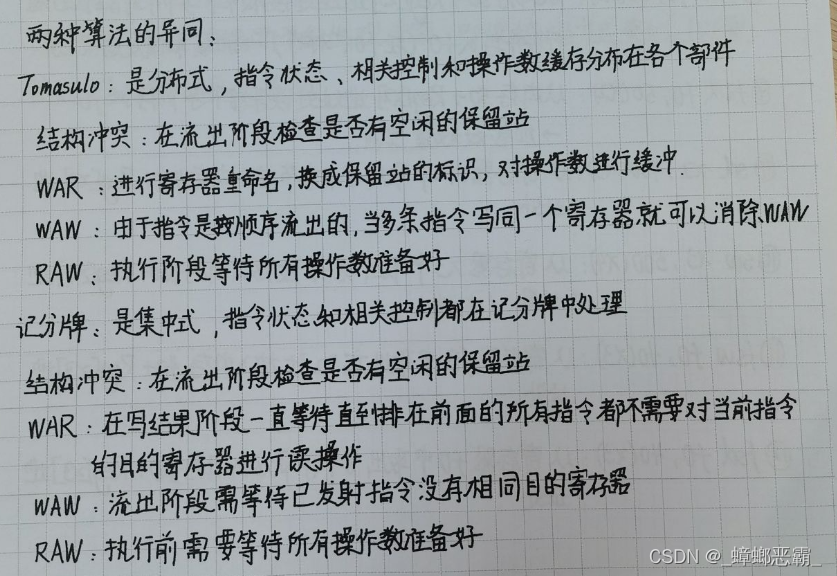 两种算法的异同:
Tomasulo:是分布式,指令状态、相关控制和操作数缓存分布在各个部件
结构冲突:在流出阶段检查是否有空闲的保留站
WAR:进行寄存器重命名,换成保留站的标识,对操作数进行缓冲.
WAW:由于指令是按顺序流出的,当多条指令写同一个寄存器就可以消除WAW
RAW:执行阶段等待所有操作数准备好
记分牌:是集中式,指令状态和相关控制都在记分牌中处理
结构冲突:在流出阶段检查是否有空闲的保留站
WAR:在写结果阶段一直等待直到排在前面的所有指令都不需要对当前指令
的目的寄存器进行读操作
WAW:流出阶段需等待已发射指令没有相同目的寄存器
RAW:执行前需要等待所有操作数准备好
CSDN @_蟑螂恶霸_